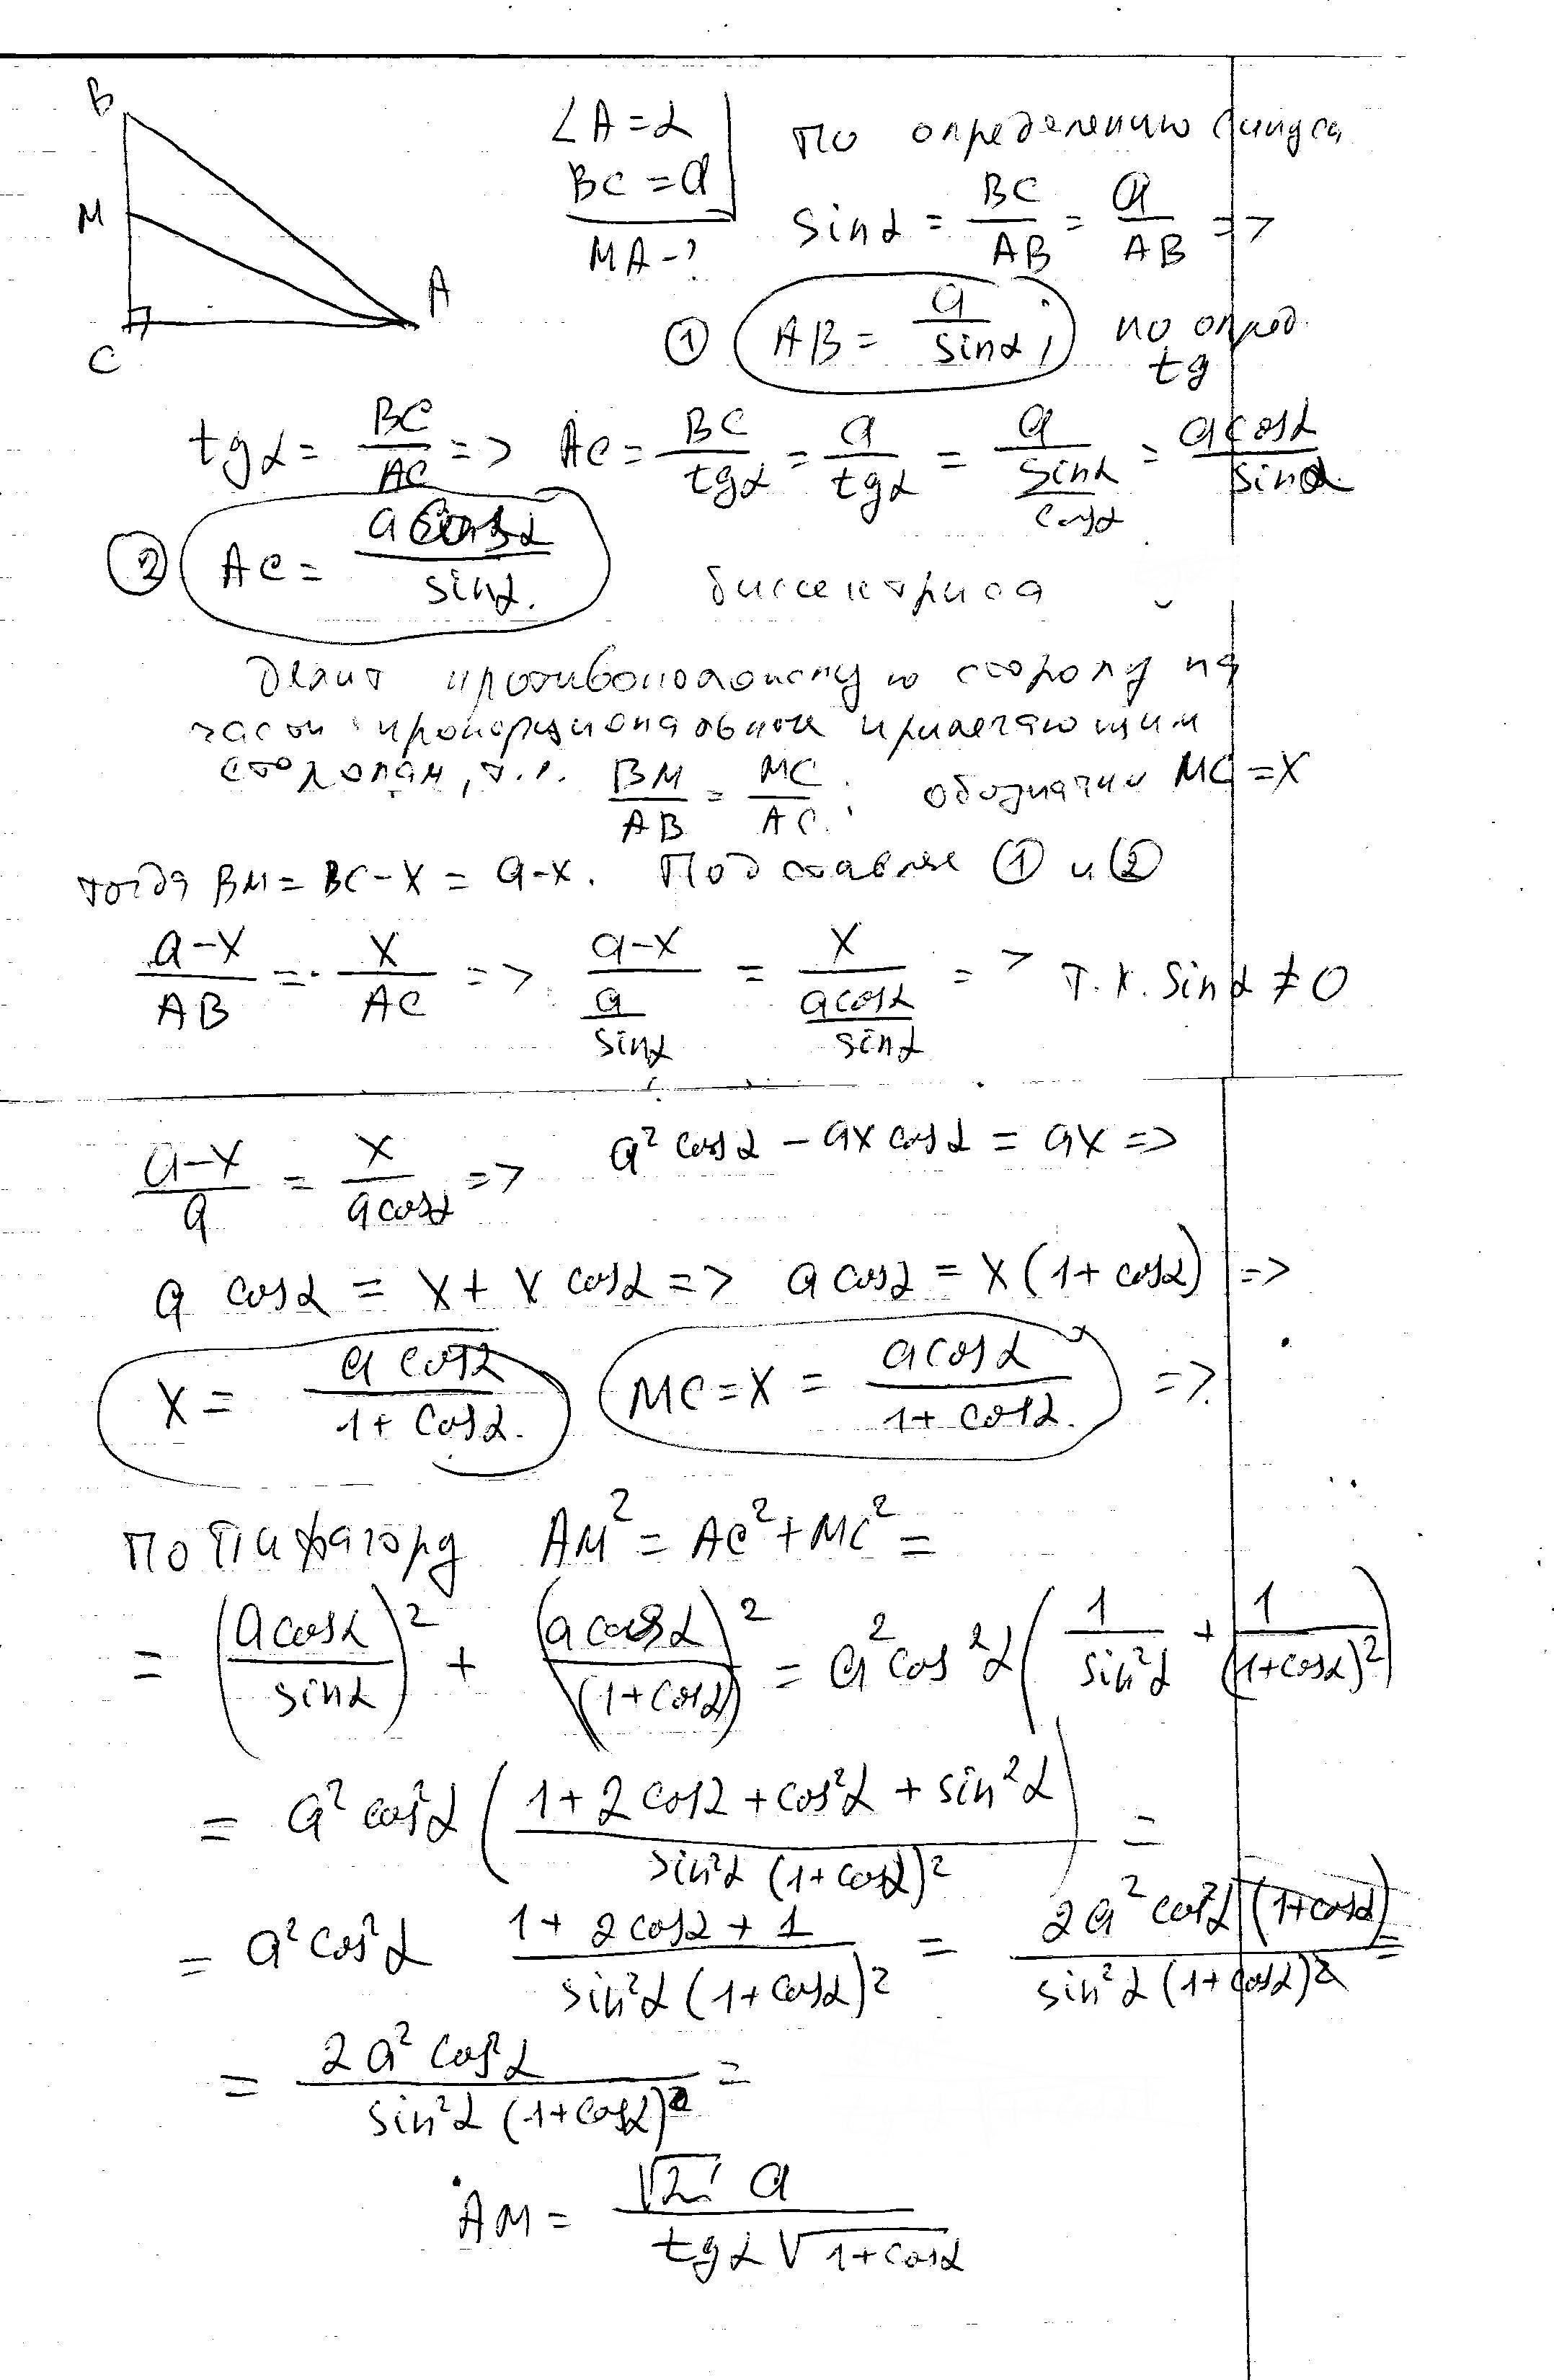 B
M
C
A
∠A = α
BC = a
MA - ?
По определению синуса
sin α = BC/AB = a/AB =>
① AB = a/sin α; по опред. tg
tg α = BC/AC => AC = BC/tg α = a/tg α = a/(sin α/cos α) = a cos α/sin α
② AC = a cos α/sin α.
биссектриса
делит противоположную сторону на
части пропорциональные прилегающим
сторонам, т.е. BM/AB = MC/AC; обозначим MC = x
тогда BM = BC - x = a - x. Подставляем ① и ②
(a-x)/AB = x/AC => (a-x)/(a/sin α) = x/(a cos α/sin α) => т.к. sin α ≠ 0
(a-x)/a = x/(a cos α) => a² cos α - ax cos α = ax =>
a cos α = x + x cos α => a cos α = x(1 + cos α) =>
x = a cos α/(1 + cos α). MC = x = a cos α/(1 + cos α). =>
По Пифагору AM² = AC² + MC² =
= (a cos α/sin α)² + (a cos α/(1+cos α))² = a² cos² α (1/sin² α + 1/(1+cos α)²)
= a² cos² α ((1 + 2 cos α + cos² α + sin² α)/(sin² α (1+cos α)²)) =
= a² cos² α (1 + 2 cos α + 1)/(sin² α (1+cos α)²) = 2a² cos² α (1+cos α)/(sin² α (1+cos α)²) =
= 2a² cos² α/(sin² α (1+cos α)) =
AM = √2 a/(tg α √(1+cos α))